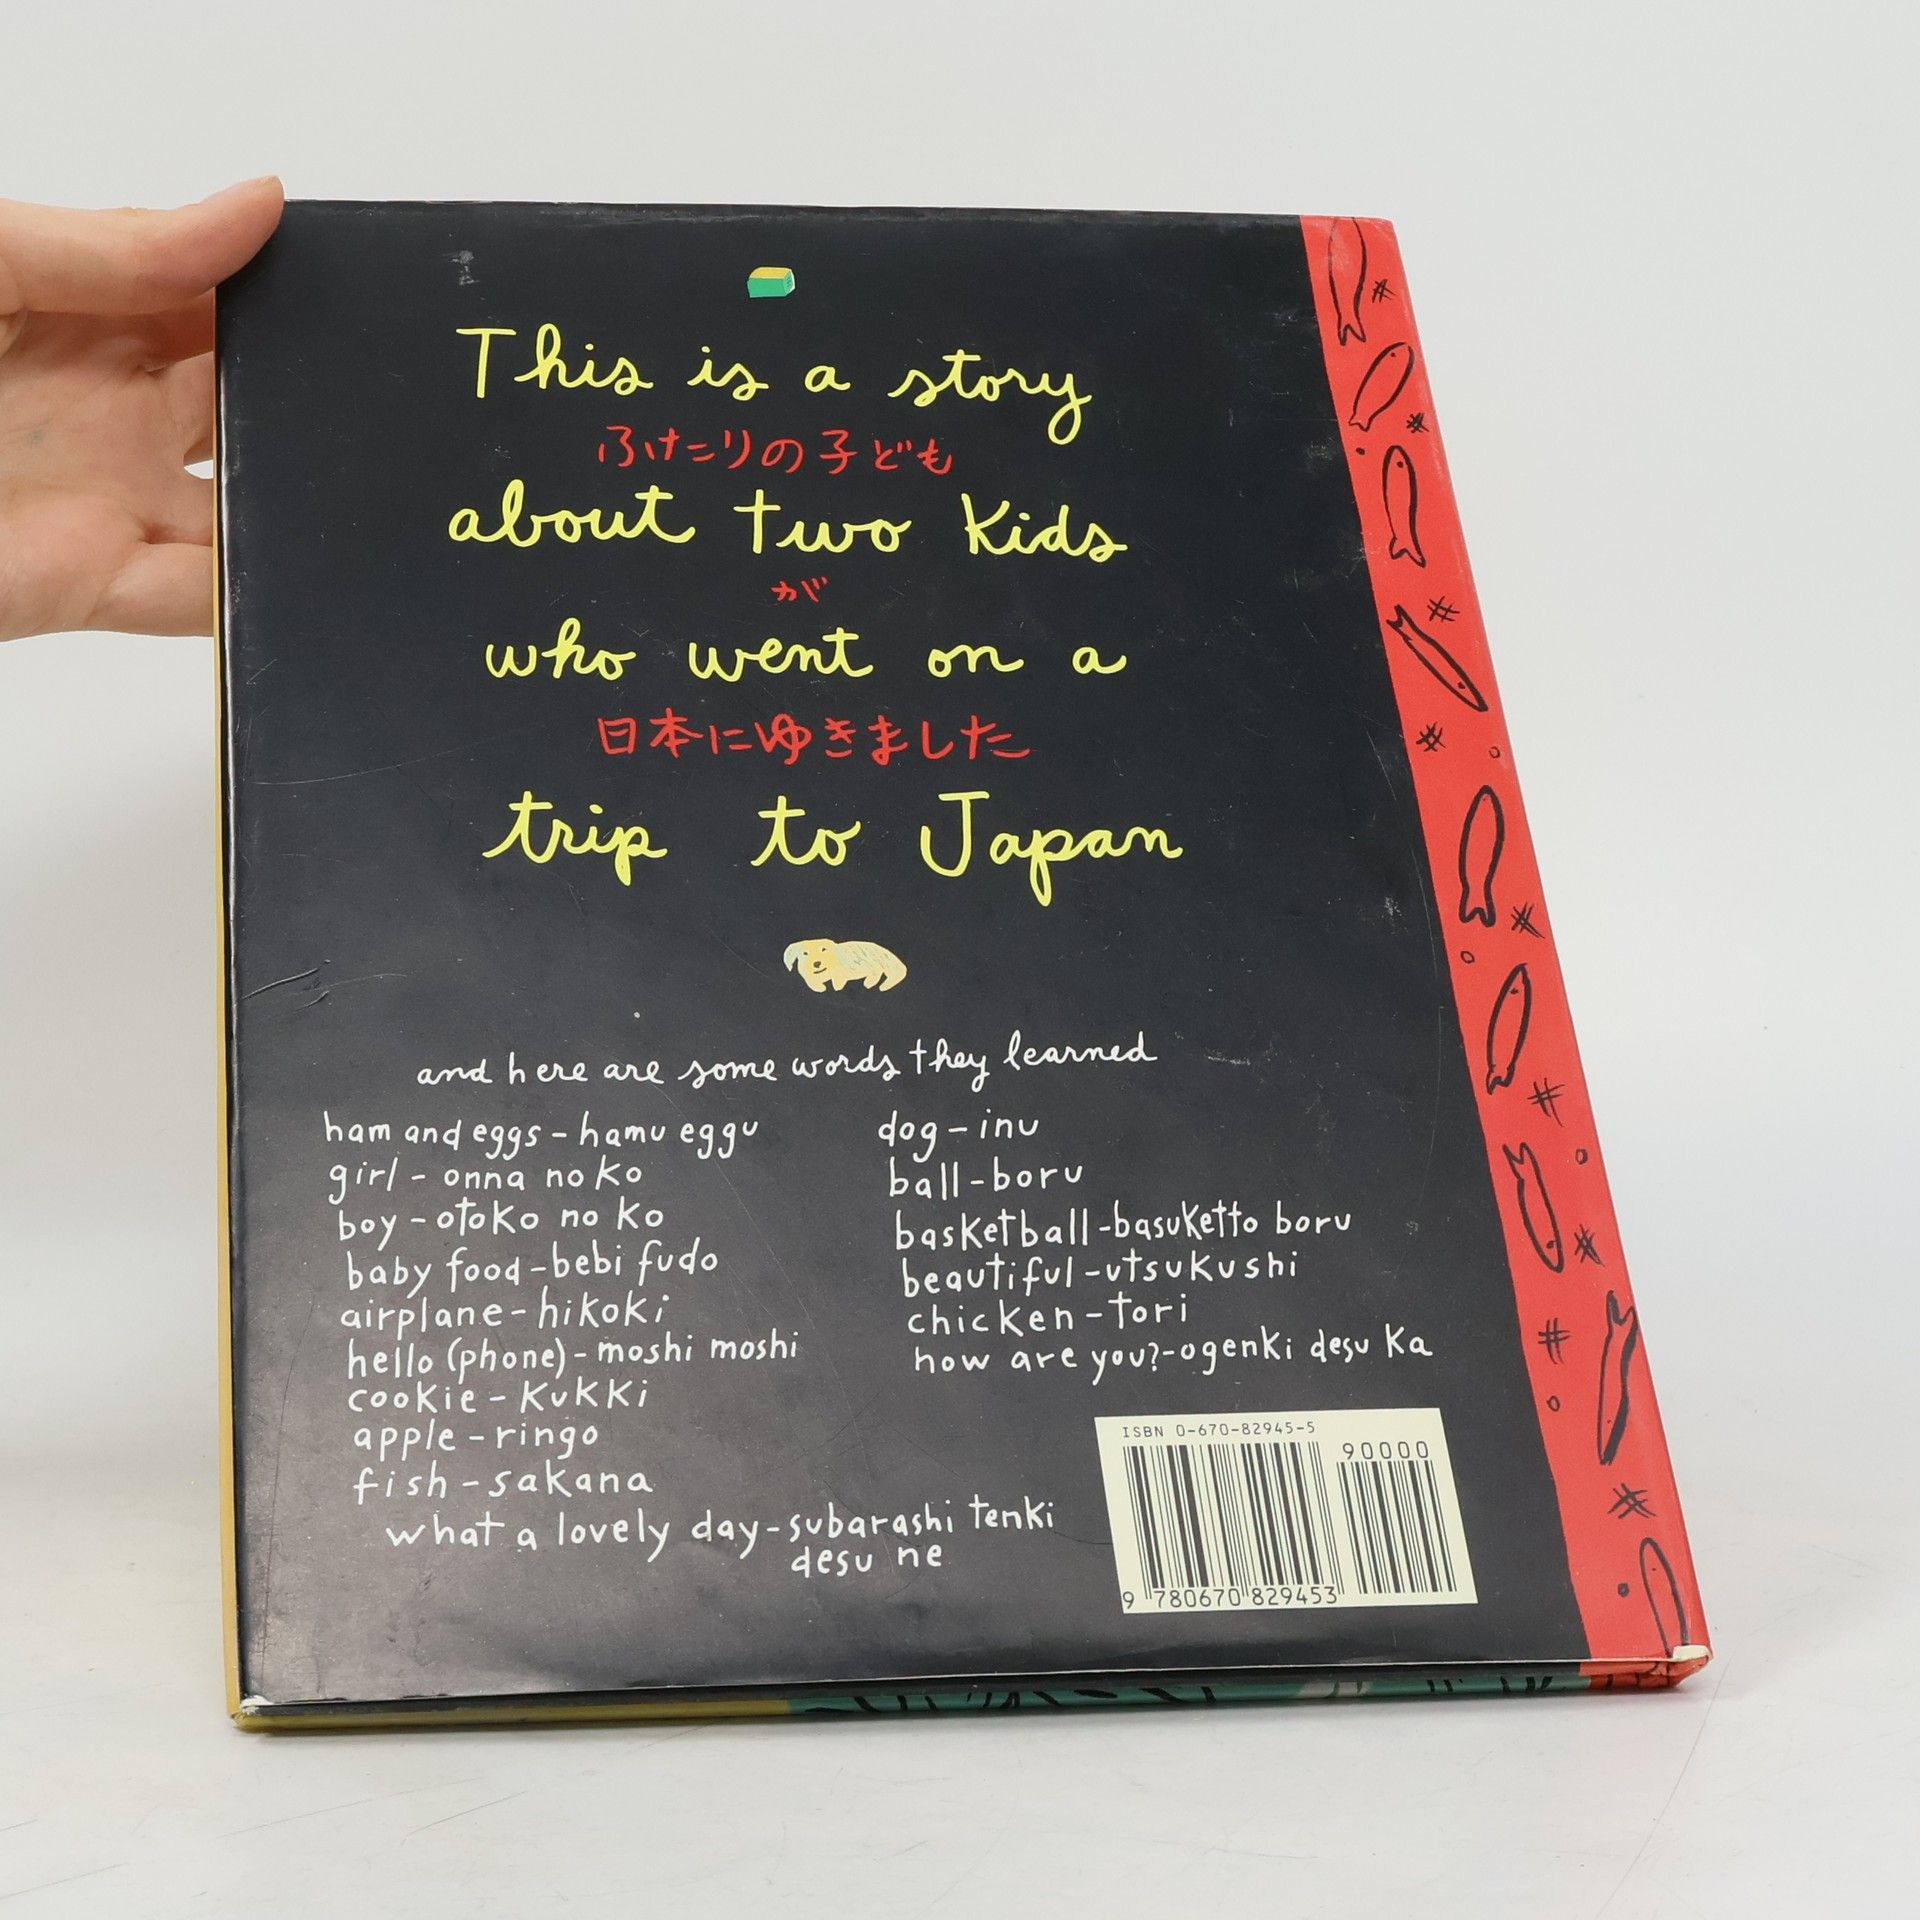 This is a story
ふたりの子ども
about two kids
が
who went on a
日本にゆきました
trip to Japan
and here are some words they learned
ham and eggs - hamu eggu
girl - onna no ko
boy - otoko no ko
baby food - bebi fudo
airplane - hikoki
hello (phone) - moshi moshi
cookie - kukki
apple - ringo
fish - sakana
what a lovely day - subarashi tenki
desu ne
dog - inu
ball - boru
basketball - basuketto boru
beautiful - utsukushi
chicken - tori
how are you? - ogenki desu ka
ISBN 0-670-82945-5
90000
9 780670 829453